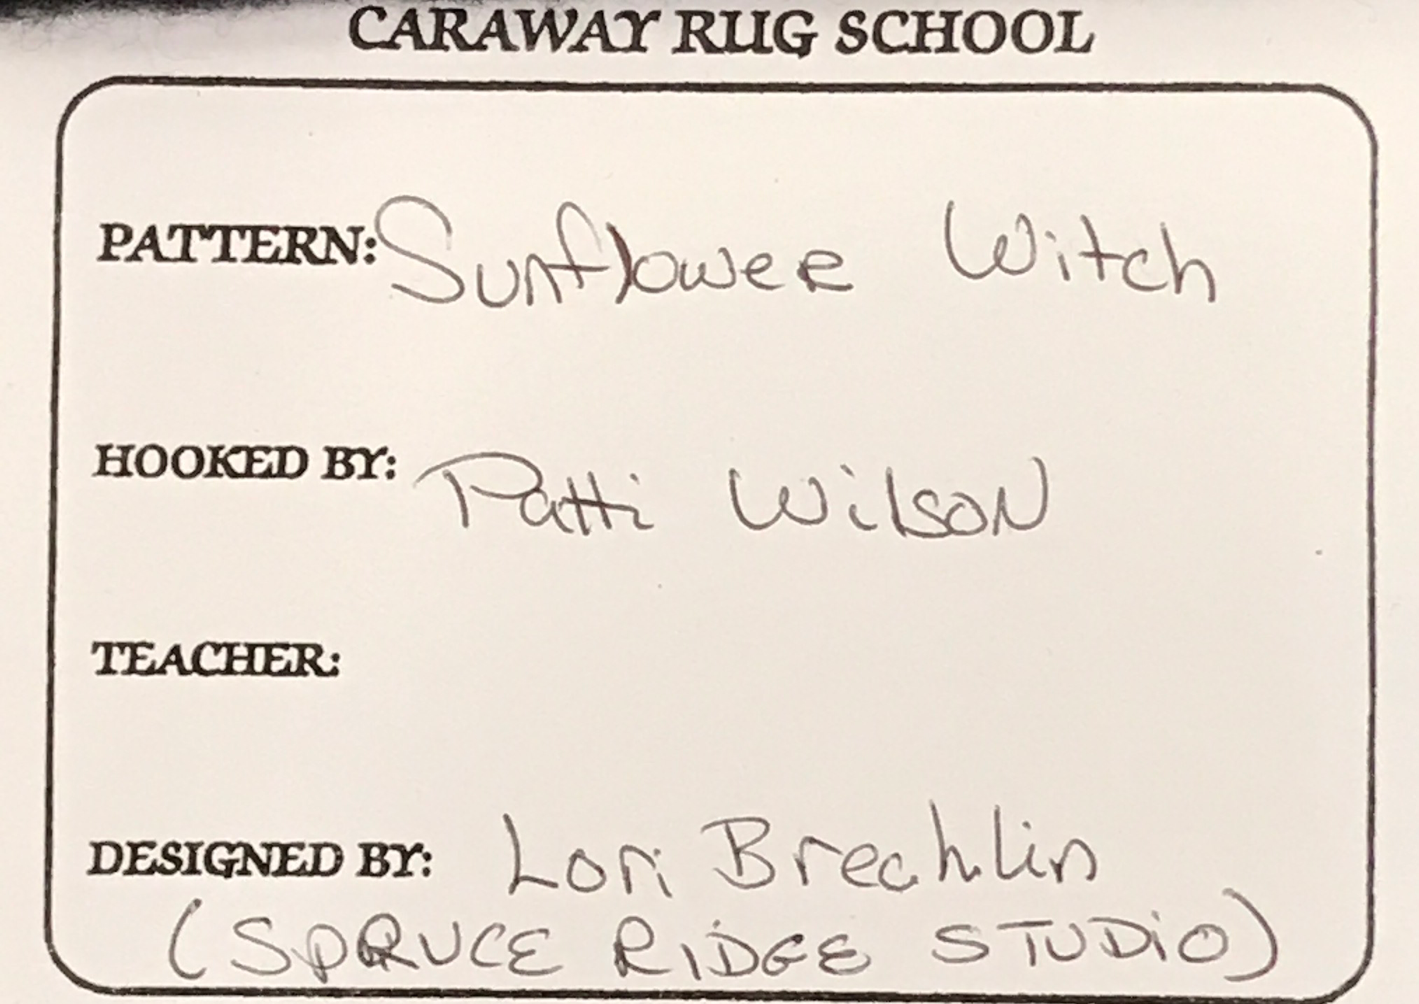 CARAWAY RUG SCHOOL
PATTERN: Sunflower Witch
HOOKED BY: Patti Wilson
TEACHER:
DESIGNED BY: Lori Brechlin
(SPRUCE RIDGE STUDIO)